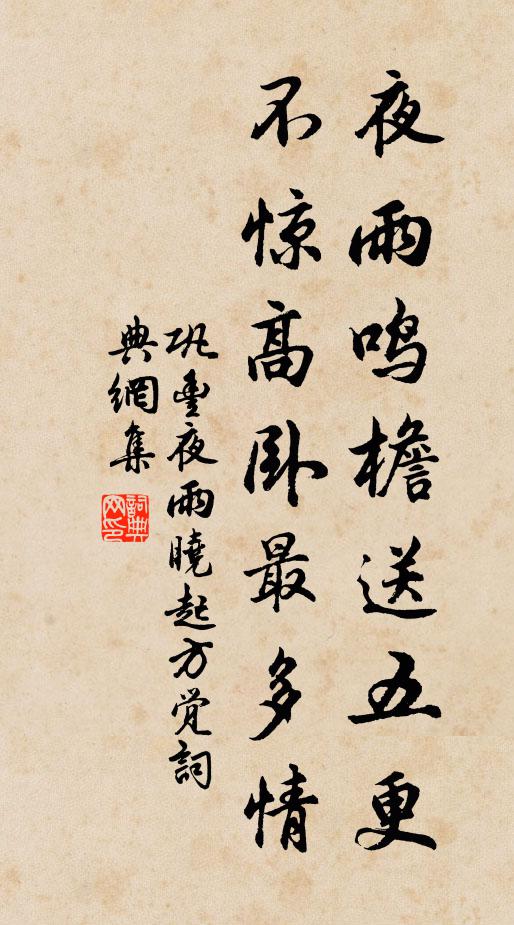 夜雨鸣檐送五更
不惊高卧最多情
巩豊夜雨曉起方觉詞
典網集
詞典
网印